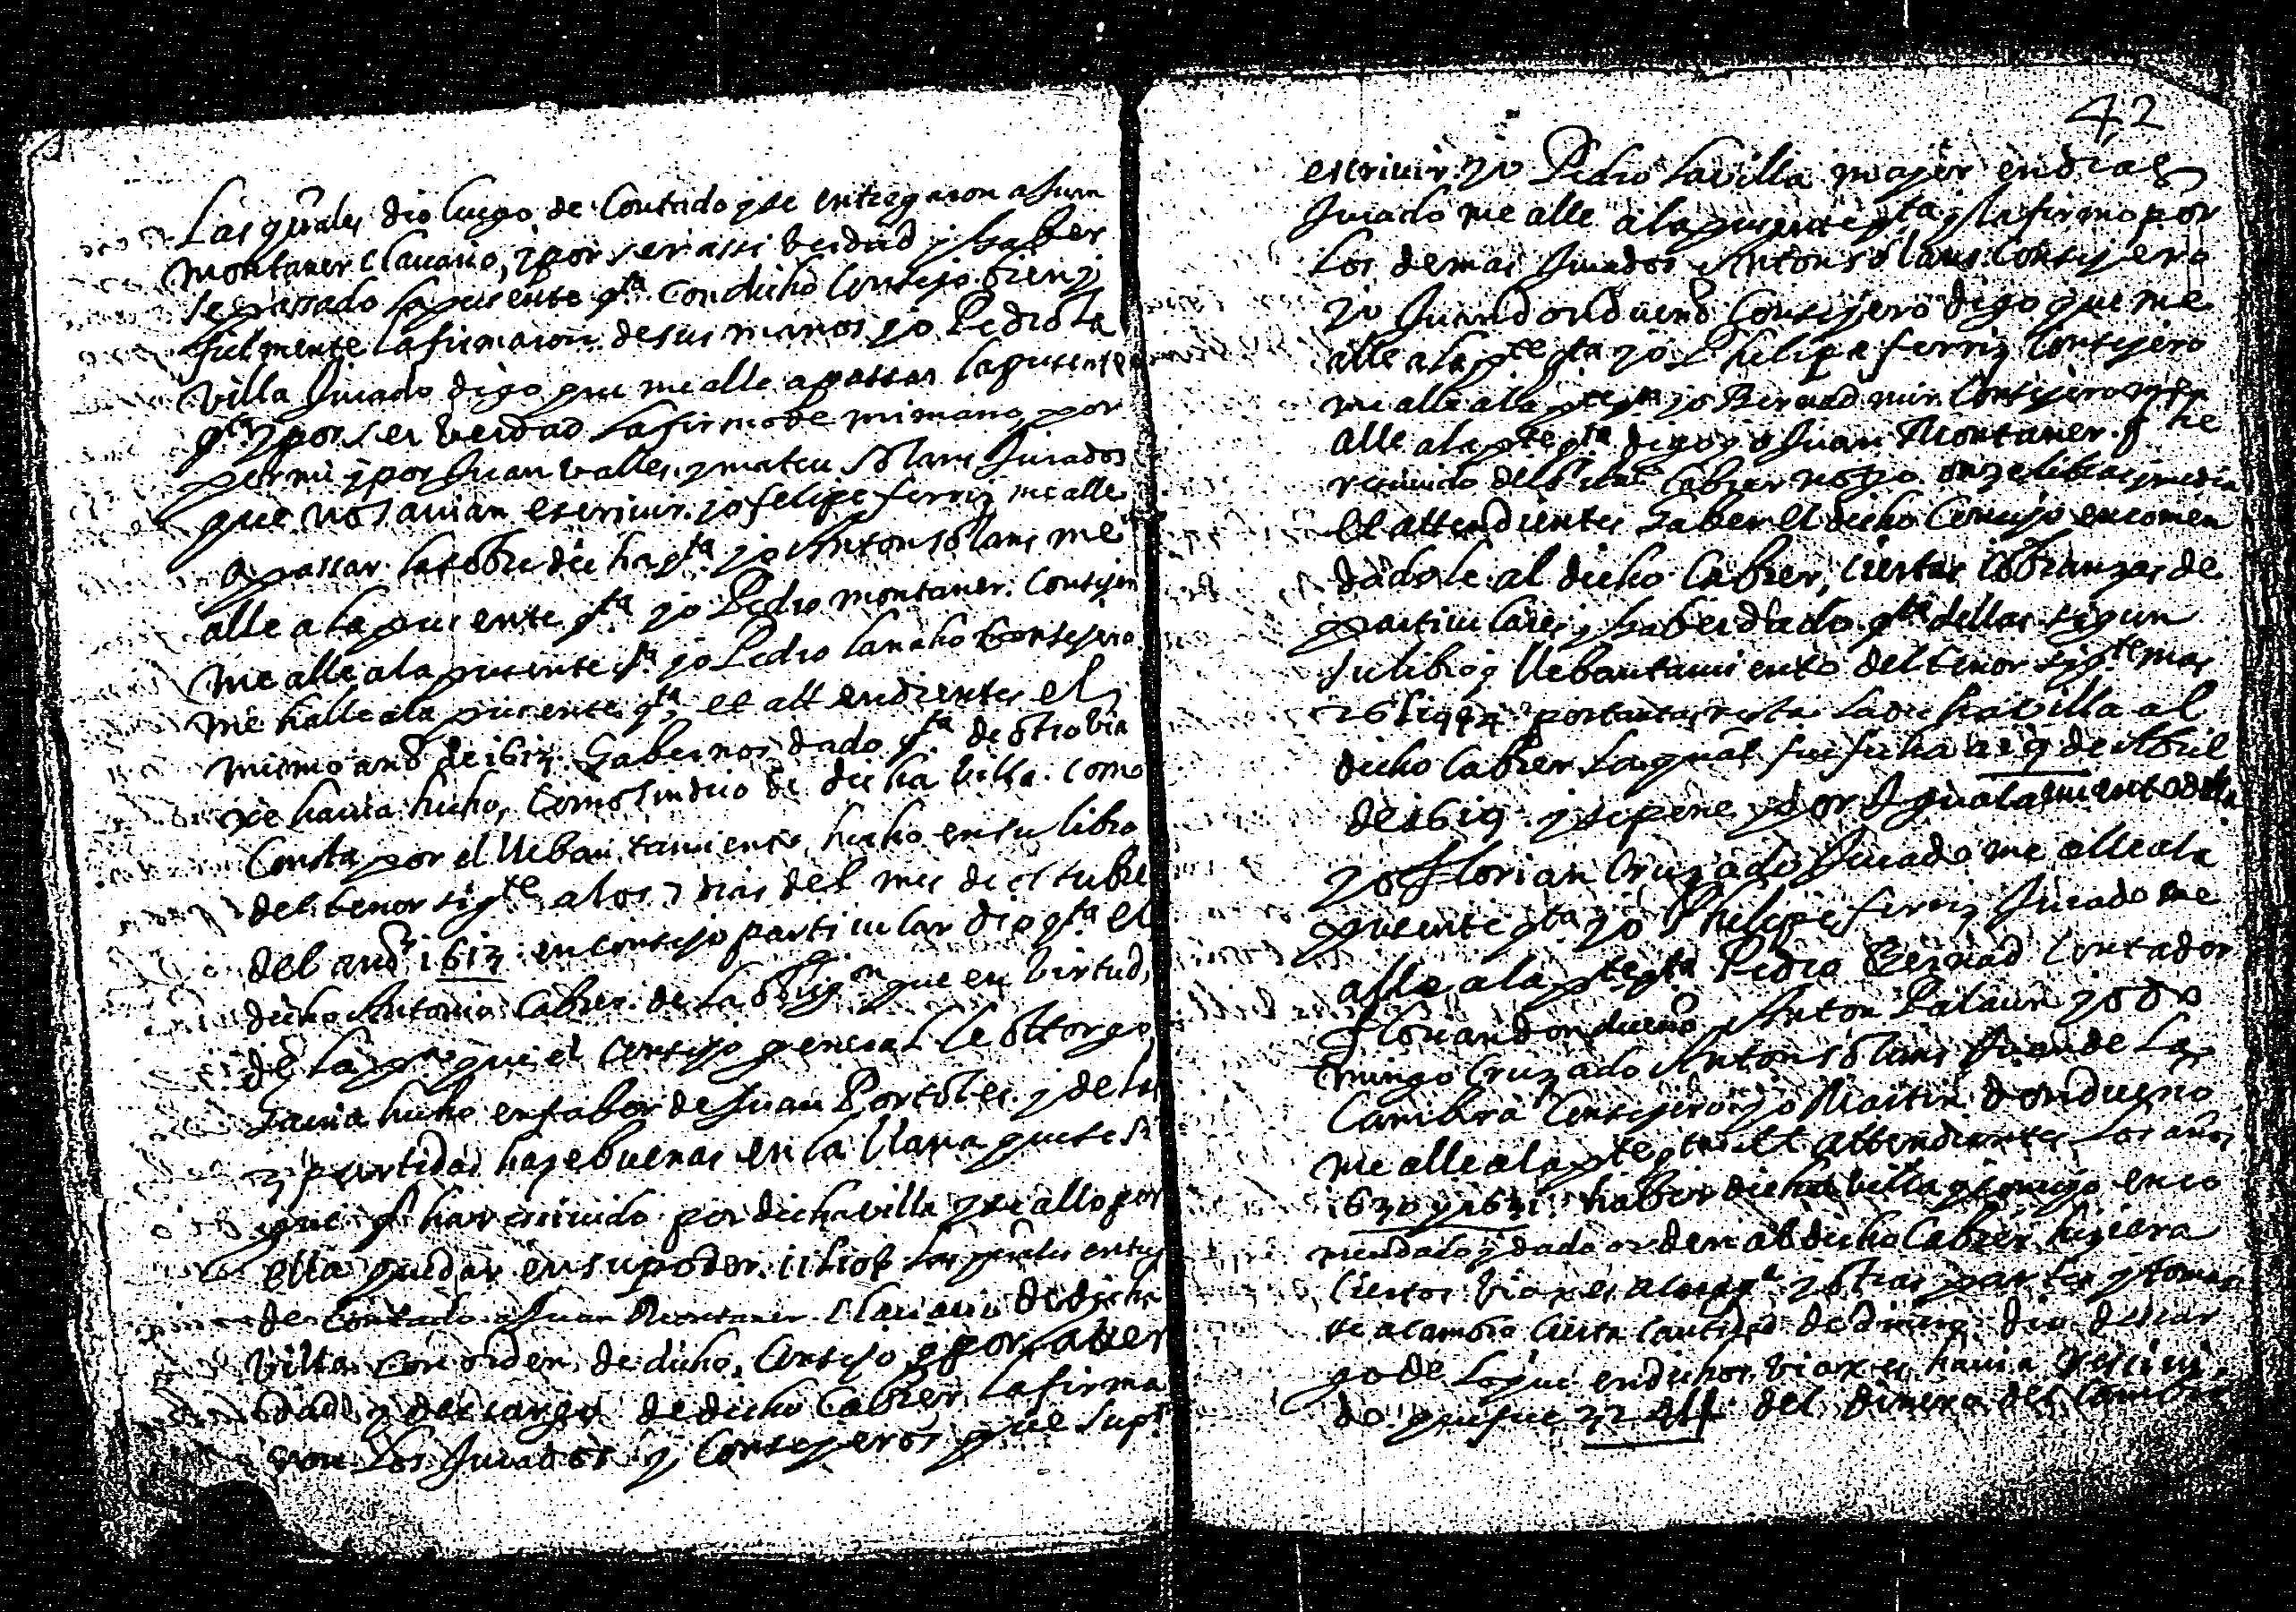 Las quales dio luego de Contado y se entregaron a Juan
montaner Clauario, y por ser assi berdad y haber
se passado la presente qta. Con dicho Consejo bien y
fielmente la firmaron de sus manos yo Pedro la
villa Jurado digo que me alle a passar la presente
qta y por ser berdad la firmo de mi mano por
por mi y por Juan valles y mateu solans Jurados
que no sauian escriuir. yo felipe ferriz me alle
a passar la sobre dicha qta yo Anton solans me
alle a la presente qta yo Pedro montaner. Consejero
me alle a la presente qta yo Pedro lanaho Consejero
me halle ala presente qta, et attendientes el
mismo año de 1613. Habernos dado qta de otro bia
xe hauia hecho, Como sindico de dicha billa. Como
Consta por el lleban tamiento hecho en su libro
del tenor sigte a los 7 dias del mes de octubre
del año 1613 en consejo particular dio qta el
dicho Antonio Cabrer de la obligon que en birtud
de la que el Consejo general le ottorgo
hauia hecho en fabor de Juan Portoles y de las
partidas haze buenas en la llana que se
que ha resciuido por dicha villa y se allo por
ella quedar en su poder. las quales entrego
de Contado a Juan Montaner Clauario de dicha
villa con orden de dicho Consejo y por auer
dad y descargo de dicho Cabrer la firma
ron los Jurados y Consejeros que supn
42
escriuir. yo Pedro lauilla mayor en dias
Jurado me alle a la presente qta y la firmo por
los demas Jurados Anton solans Consejero
yo Juan dondueno Consejero digo que me
alle a la pte qta yo Phelipe ferriz Consejero
me alle a la pte qta yo Bernad mir Consejero me
alle a la pte qta digo yo Juan Montaner. q he
resciuido del Cabrer onze libras y media
Et attendientes Haber el dicho Consejo encomen
dadole al dicho Cabrer, ciertas Cobranzas de
particulares y haber dado qta dellas segun
su libro y llebantami ento del tenor sigte mas
por tanta resta la dicha villa al
dicho Cabrer la qual fue fecha a 19 de Abril
de 1619. y se pone por
yo florian Cruzado Jurado me alle ala
presente qta yo Phelipe ferriz Jurado me
alle a la pte qta Pedro Bernad Contador
Juan dondueno Anton Palaun yo do
mingo Cruzado Anton solans Juan de la
Cambra Consejero yo Martin dondueno
me alle a la pte qta Et attendientes los años
1630 y 1631. haber dicha billa y consejo enco
mendado y dado orden al dicho Cabrer hiziera
ciertos biaxes y otras partes y toma
se a cambio cierta cantidad de dinero dio descar
go de lo que en dichos biaxes hauia resciui
do que fue del dinero del Cambio